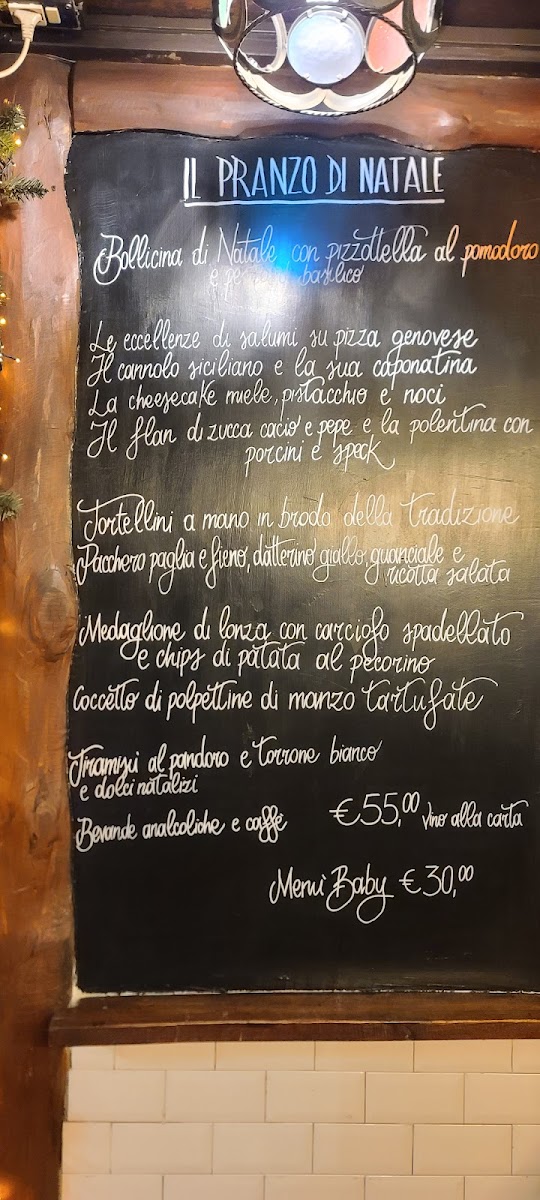 IL PRANZO DI NATALE
Bollicina di Natale con pizzottella al pomodoro
e basilico
Le eccellenze di salumi su pizza genovese
Il cannolo siciliano e la sua caponatina
La cheesecake miele, pistacchio e noci
Il flan di zucca cacio e pepe e la polentina con
porcini e speck
Tortellini a mano in brodo della tradizione
Pacchero paglia e fieno, datterino giallo, guanciale e
ricotta salata
Medaglione di lonza con carciofo spadellato
e chips di patata al pecorino
Coccetto di polpettine di manzo tartufate
Tiramisu al pandoro e torrone bianco
e dolci natalizi
Bevande analcoliche e caffè €55,00 vino alla carta
Menu Baby €30,00